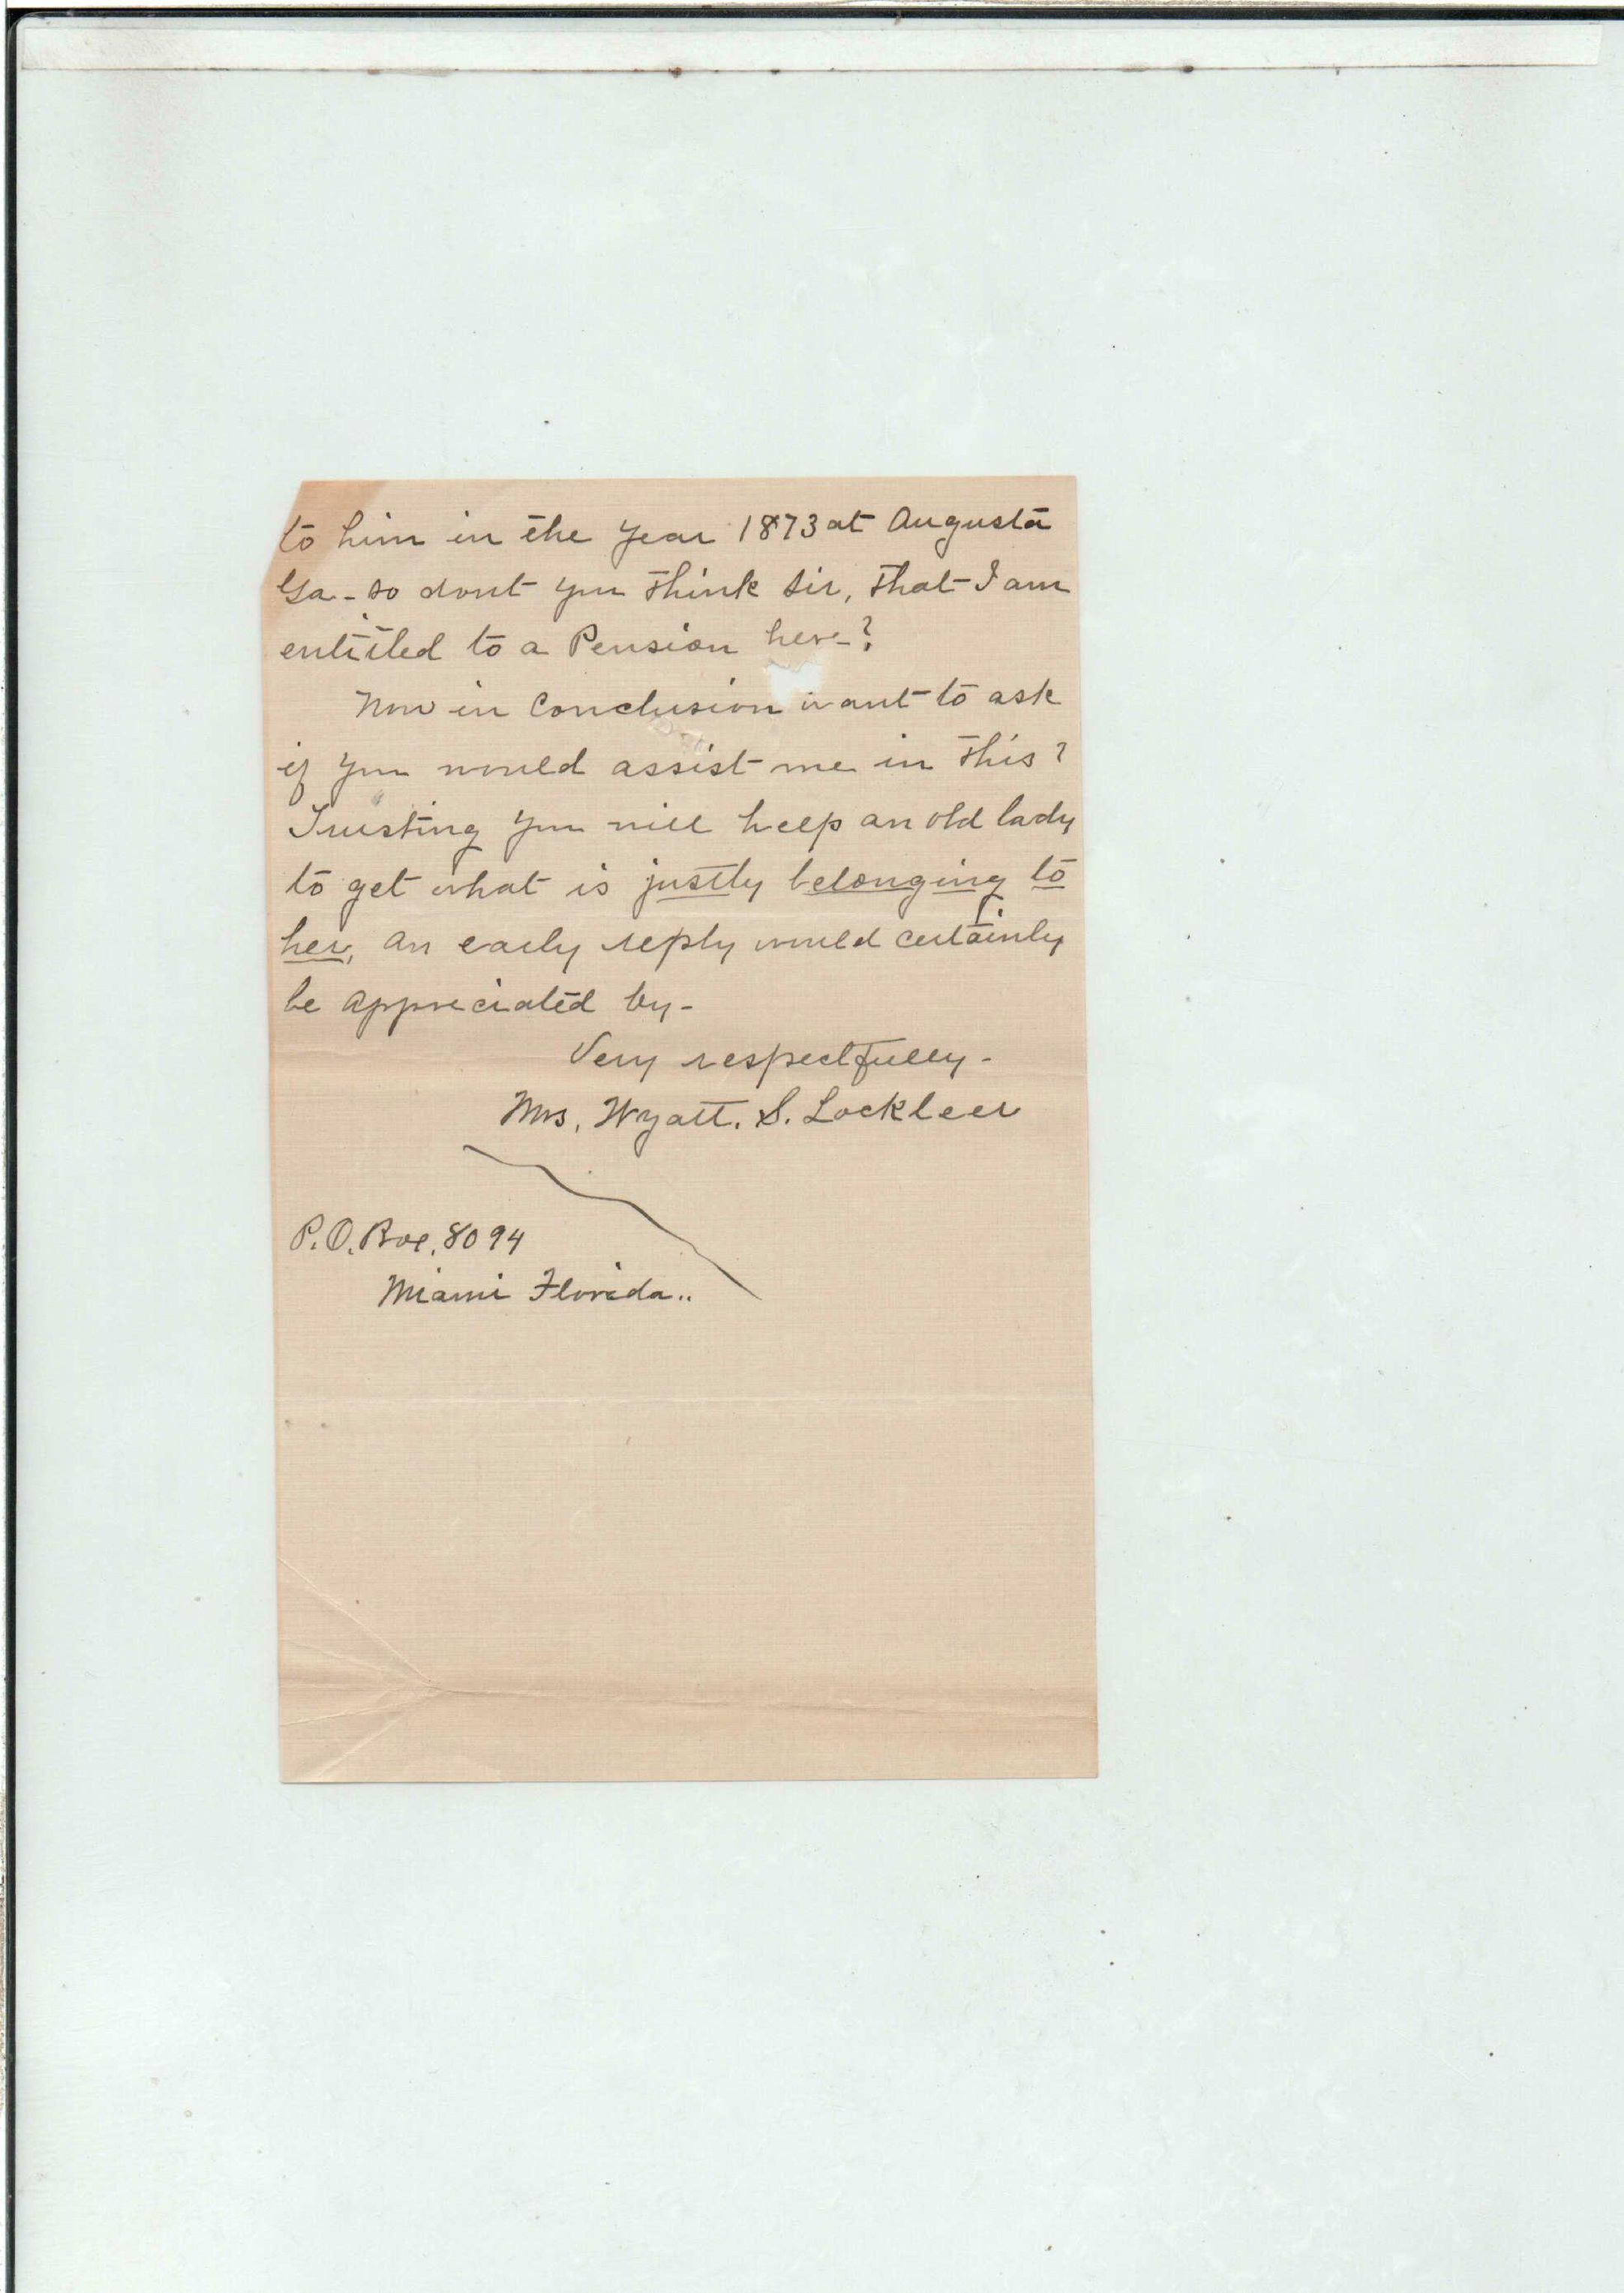 to him in the year 1873 at Augusta
Ga - so dont you think sir, that I am
entitled to a Pension here - ?
Now in Conclusion want to ask
if you would assist me in this ?
Trusting you will help an old lady
to get what is justly belonging to
her, an early reply would certainly
be appreciated by -
Very respectfully -
Mrs. Wyatt. S. Lockleer
P.O. Box. 8094
Miami Florida..